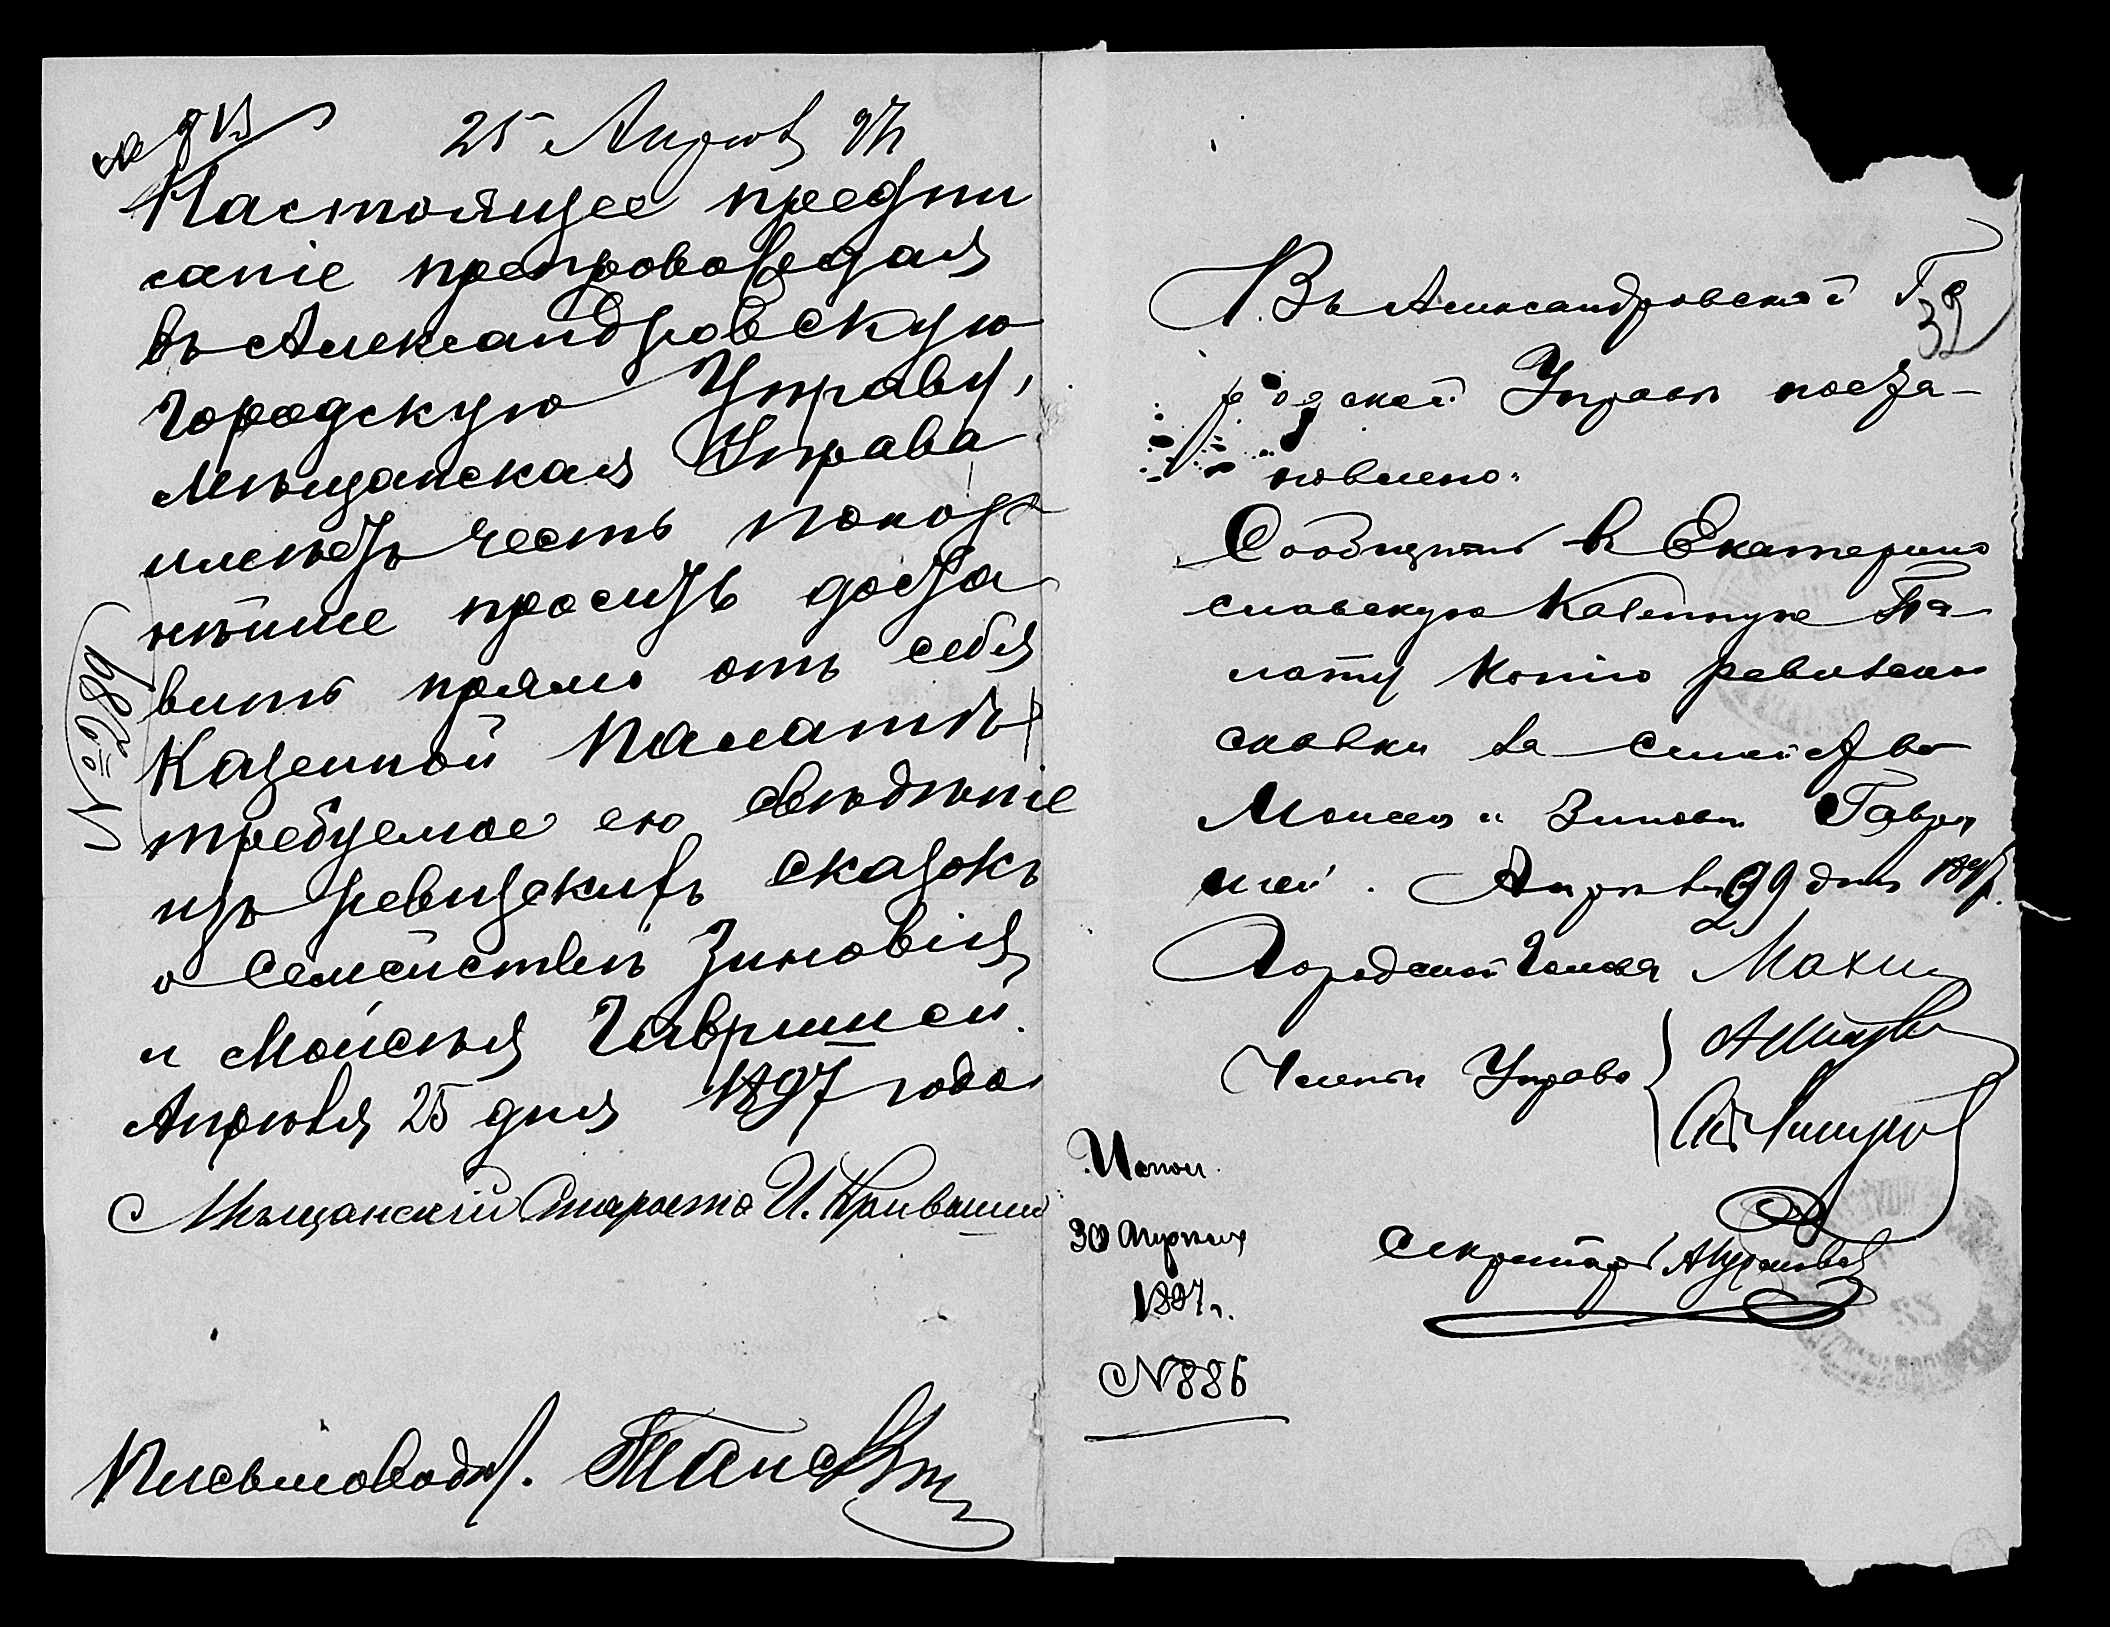 25 Апрѣля 97
Настоящее предпи
саніе препровождая
въ Александровскую
Городскую Управу,
Мѣщанская Управа
имѣетъ честь покор
нѣйше проситъ доста
вить прямо отъ себя
Казенной Палатѣ
требуемое ею свѣдѣніе
изъ ревизскихъ сказокъ
о семействѣ Зиновія
и Мойсѣя Гавришей.
Апрѣля 25 дня 1897 года
Мѣщанскій Староста И.
Письмоводит.
32
Въ Александровской Го
родской Управѣ поста-
новлено:
Сообщить въ Екатерино
славскую Казенную Па-
лату копію ревизской
сказки за семейство
Моисея и Зиновія Гаври
шей. Апрѣля 29 дня 1897 г.
Городской Голова
Члены Управы
Секретарь
Испол.
30 Апрѣля
1897 г.
№ 886